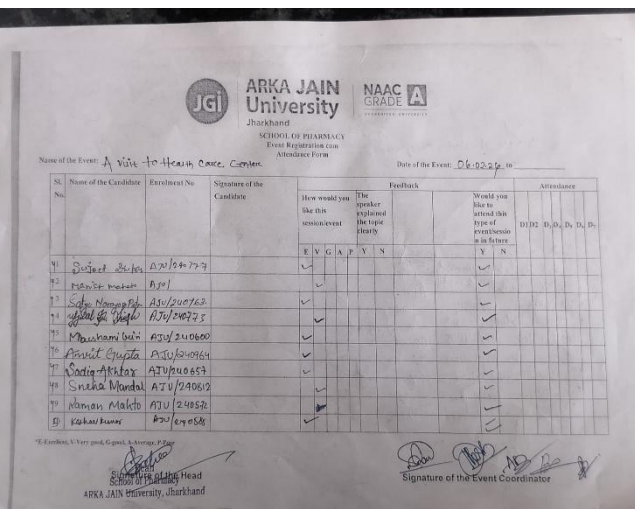 JGi
ARKA JAIN
University
Jharkhand
NAAC
GRADE A
ACCREDITED UNIVERSITY
SCHOOL OF PHARMACY
Event Registration cum
Attendance Form
Name of the Event: A visit to Health Care Center
Date of the Event: 06.02.26 to
Sl. No. Name of the Candidate Enrolment No Signature of the Candidate Feedback Attendance
How would you like this session/event
The speaker explained the topic clearly
Would you like to attend this type of event/session in future
D1 D2 D3 D4 D5 D6 D7
E V G A P Y N Y N
41 Sujeet AJU/240777
42 Manish Mahato AJU/
43 Satya Narayan AJU/240763
44 AJU/240773
45 Moushami Guin AJU/240600
46 Amrit Gupta AJU/240964
47 Sadiq Akhtar AJU/240657
48 Sneha Mandal AJU/240812
49 Raman Mahto AJU/240572
50 Keshav Kumar AJU/
*E-Excellent, V-Very good, G-good, A-Average, P-Poor
Head
Signature of the Head
School of Pharmacy
ARKA JAIN University, Jharkhand
Signature of the Event Coordinator